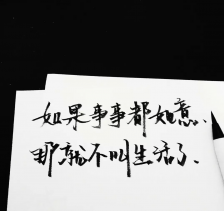 如果事事都如意.
那就不叫生活了.